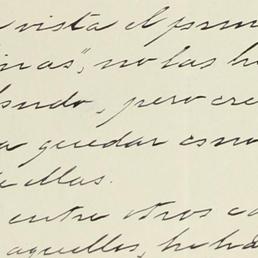 vista el prim
inas", no las h
, pero cre
a quedar
de ellas.
entre otros ca
aquellos, he ha